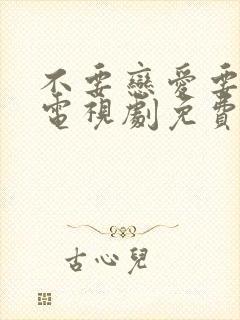 不要戀愛要
電視劇免費
古心兒